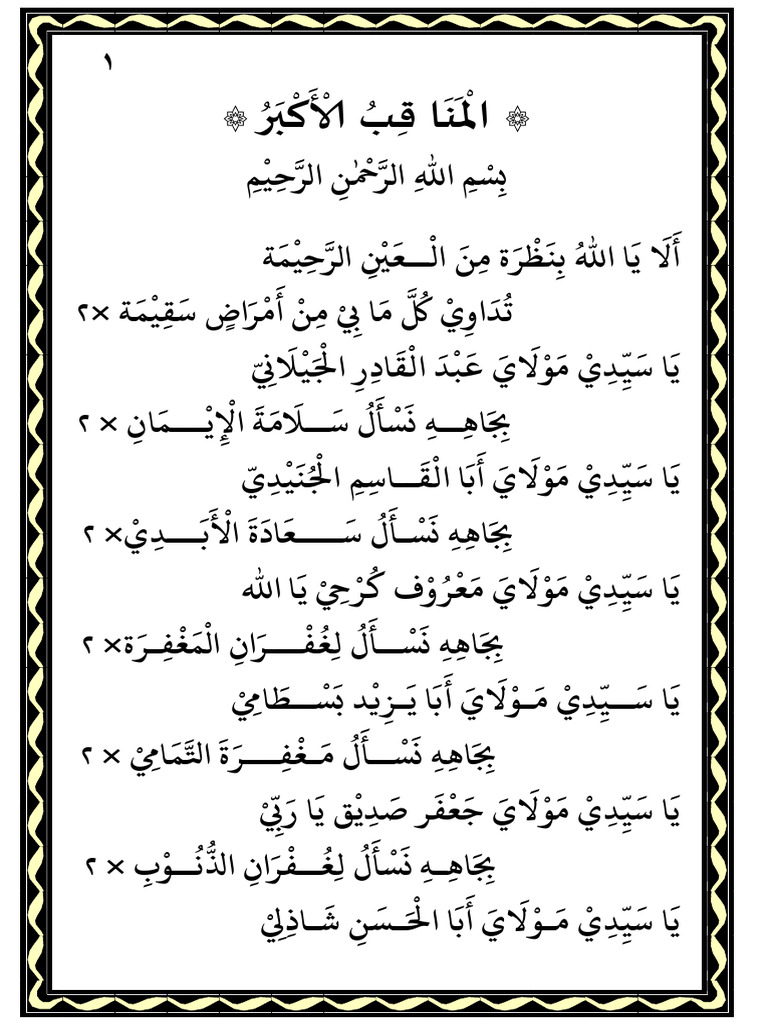 ١
۞ الْمَنَا قِبُ الْأَكْبَرُ ۞
بِسْمِ اللهِ الرَّحْمٰنِ الرَّحِيْمِ
أَلَا يَا اللهُ بِنَظْرَة مِنَ الْـــعَيْنِ الرَّحِيْمَة
تُدَاوِيْ كُلَّ مَا بِيْ مِنْ أَمْرَاضٍ سَقِيْمَة ×٢
يَا سَيِّدِيْ مَوْلَايَ عَبْدَ الْقَادِرِ الْجَيْلَانِيّ
بِجَاهِـــهِ نَسْأَلُ سَـــلَامَةَ الْإِيْـــمَانِ × ٢
يَا سَيِّدِيْ مَوْلَايَ أَبَا الْقَـــاسِمِ الْجُنَيْدِيّ
بِجَاهِهِ نَسْـأَلُ سَـــعَادَةَ الْأَبَـــدِيْ× ٢
يَا سَيِّدِيْ مَوْلَايَ مَعْرُوْف كُرْحِيْ يَا الله
بِجَاهِهِ نَسْـــأَلُ لِغُفْـــرَانِ الْمَغْفِـرَة× ٢
يَا سَـــيِّدِيْ مَـوْلَايَ أَبَا يَـزِيْد بَسْـــطَامِيْ
بِجَاهِهِ نَسْـــأَلُ مَـغْفِـــرَةَ التَّمَامِيْ × ٢
يَا سَيِّدِيْ مَوْلَايَ جَعْفَر صَدِيْق يَا رَبِّيْ
بِجَاهِـهِ نَسْأَلُ لِغُـــفْرَانِ الذُّنُـــوْبِ × ٢
يَا سَيِّدِيْ مَـوْلَايَ أَبَا الْحَـسَنِ شَـاذِلِيْ